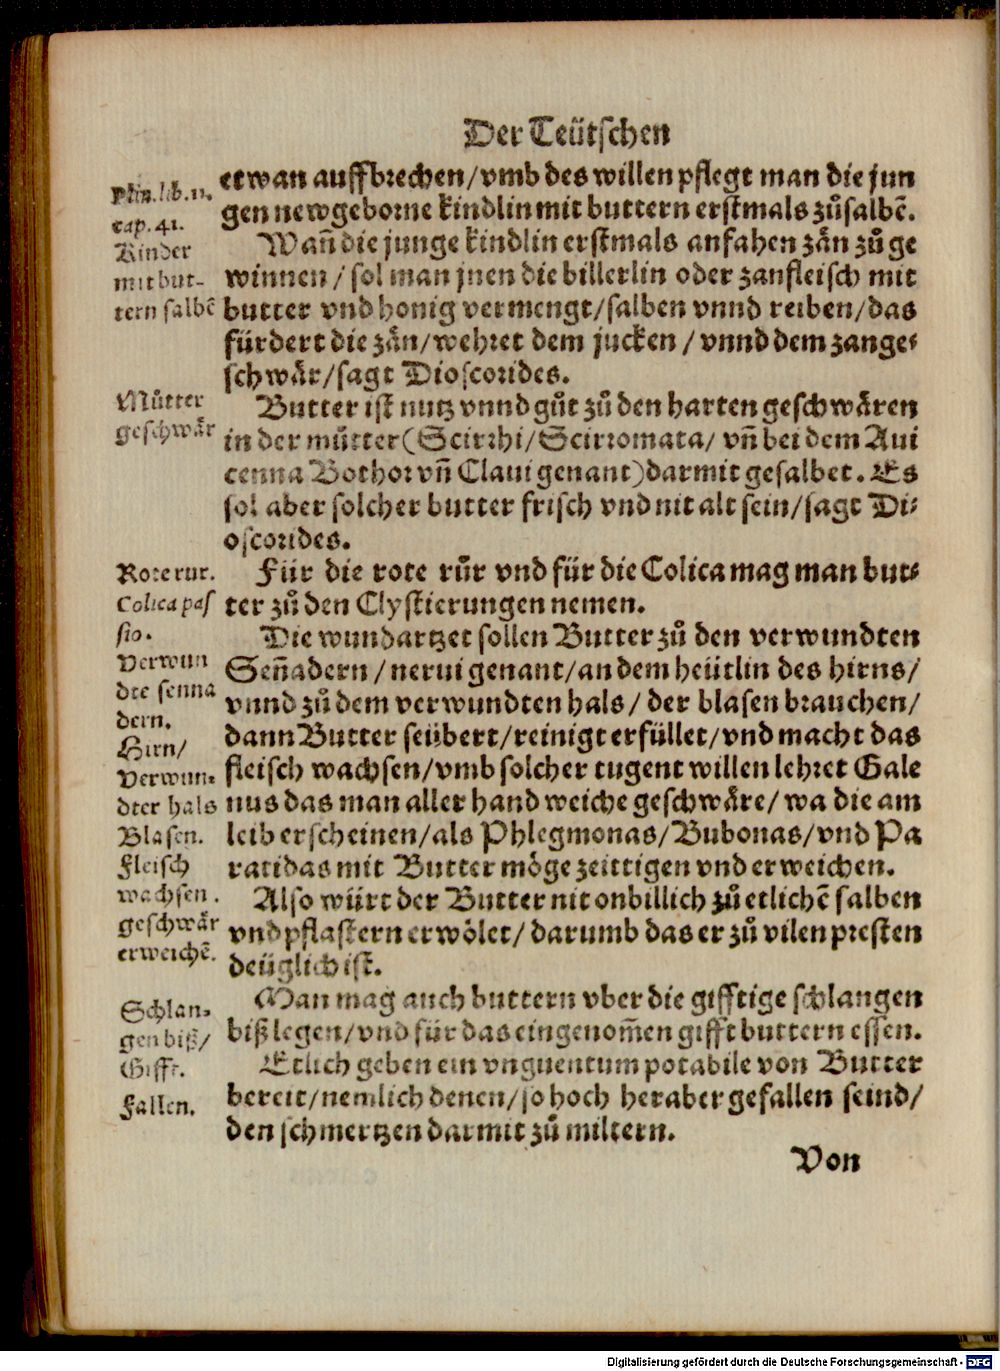 Der Teütschen
Plin. lib. 11.
cap. 41.
Kinder
mit but-
tern salbẽ
etwan auffbrechen/vmb des willen pflegt man die jun
gen newgeborne kindlin mit buttern erstmals zůsalbẽ.
Wañ die junge kindlin erstmals anfahen zän zů ge
winnen / sol man jnen die billerlin oder zanfleisch mit
butter vnd honig vermengt/salben vnnd reiben/das
fürdert die zän/wehret dem jucken / vnnd dem zange⸗
schwär/sagt Dioscorides.
Můtter
geschwär
Butter ist nutz vnnd gůt zů den harten geschwären
in der můtter(Scirrhi/Scirromata/ vñ bei dem Aui
cenna Bothor vñ Claui genant)darmit gesalbet. Es
sol aber solcher butter frisch vnd nit alt sein/sagt Di⸗
oscorides.
Rote rur.
Colica pas
sio.
Für die rote růr vnd für die Colica mag man but⸗
ter zů den Clystierungen nemen.
Verwun
dte senna
dern.
Hirn/
Verwun⸗
dter hals
Blasen.
Fleisch
wachsen.
geschwär
erweichẽ.
Die wundartzet sollen Butter zů den verwundten
Señadern / nerui genant/an dem heütlin des hirns/
vnnd zů dem verwundten hals/ der blasen brauchen/
dann Butter seübert/reinigt erfüllet/vnd macht das
fleisch wachsen/vmb solcher tugent willen lehret Gale
nus das man aller hand weiche geschwäre/ wa die am
leib erscheinen/als Phlegmonas/Bubonas/vnd Pa
ratidas mit Butter möge zeittigen vnd erweichen.
Also würt der Butter nit onbillich zů etlichẽ salben
vnd pflastern erwölet/ darumb das er zů vilen presten
deüglich ist.
Schlan⸗
gen biß/
Gifft.
Fallen.
Man mag auch buttern vber die gifftige schlangen
biß legen/vnd für das eingenom̃en gifft buttern essen.
Etlich geben ein vnguentum potabile von Butter
bereit/nemlich denen/so hoch heraber gefallen seind/
den schmertzen darmit zů miltern.
Von
Digitalisierung gefördert durch die Deutsche Forschungsgemeinschaft - DFG